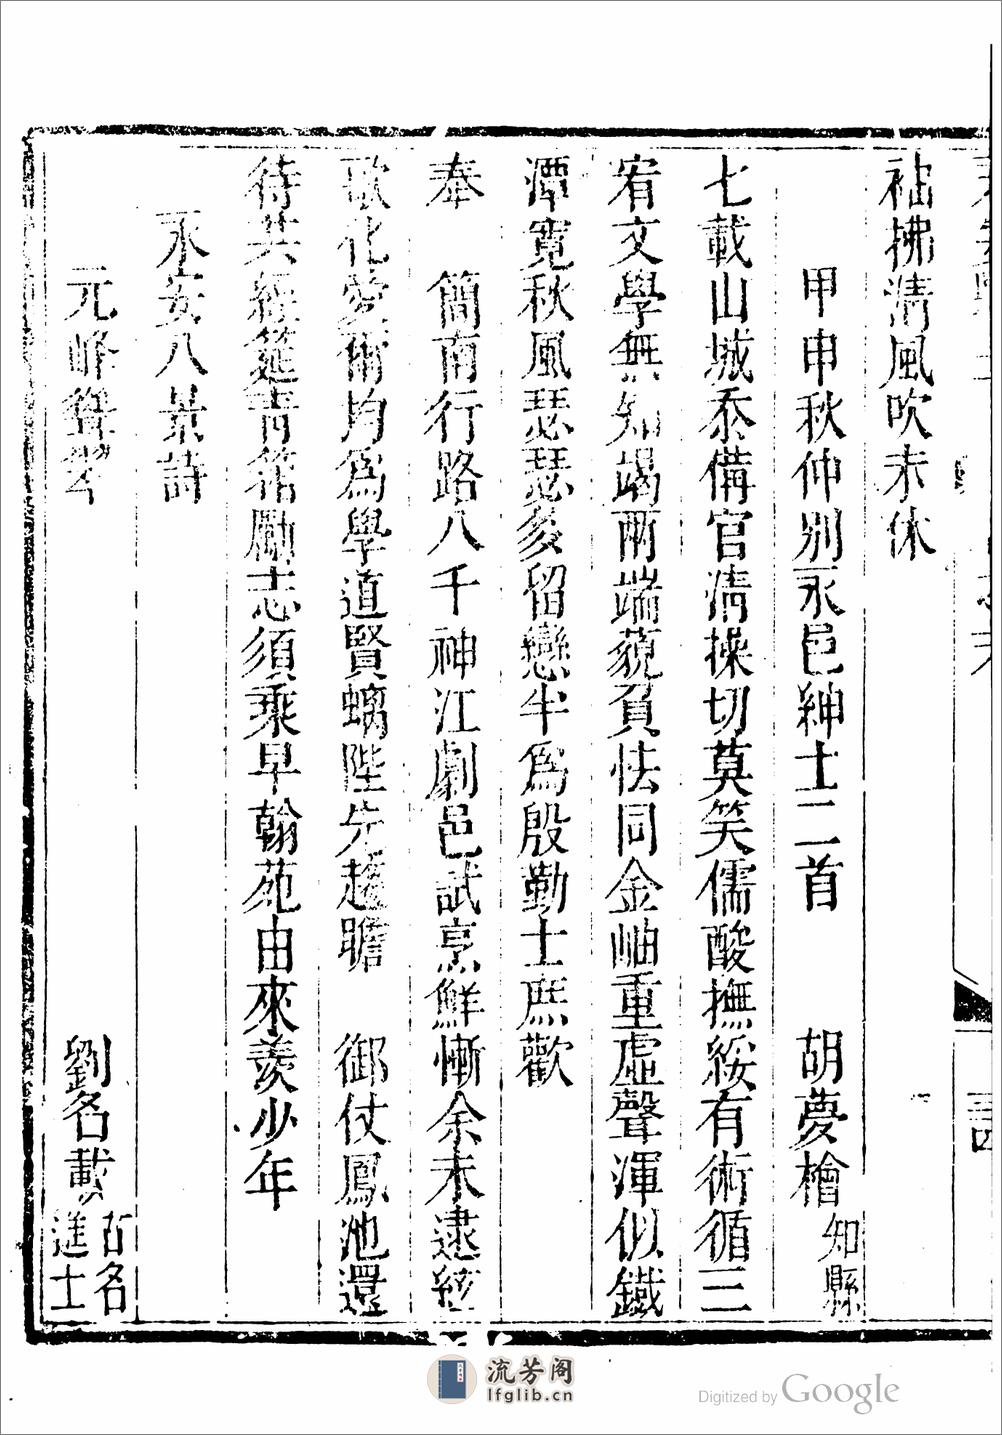 袖拂清風吹未休
甲申秋仲別永邑紳士二首 胡夢檜 知縣
七載山城忝備官清操切莫笑儒酸撫綏有術循三
宥文學無知竭兩端藐負怯同金岫重虛聲渾似鐵
潭寬秋風瑟瑟多留戀半為殷勤士庶歡
奉 簡南行路八千神江劇邑試烹鮮慚余未逮絃
歌化愛爾均為學道賢螭陛先趨瞻 御仗鳳池還
待共經筵青箱勵志須乘早翰苑由來羨少年
永安八景詩
元峰聳翠 劉名載 古名進士
流芳阁
lfglib.cn
Digitized by Google